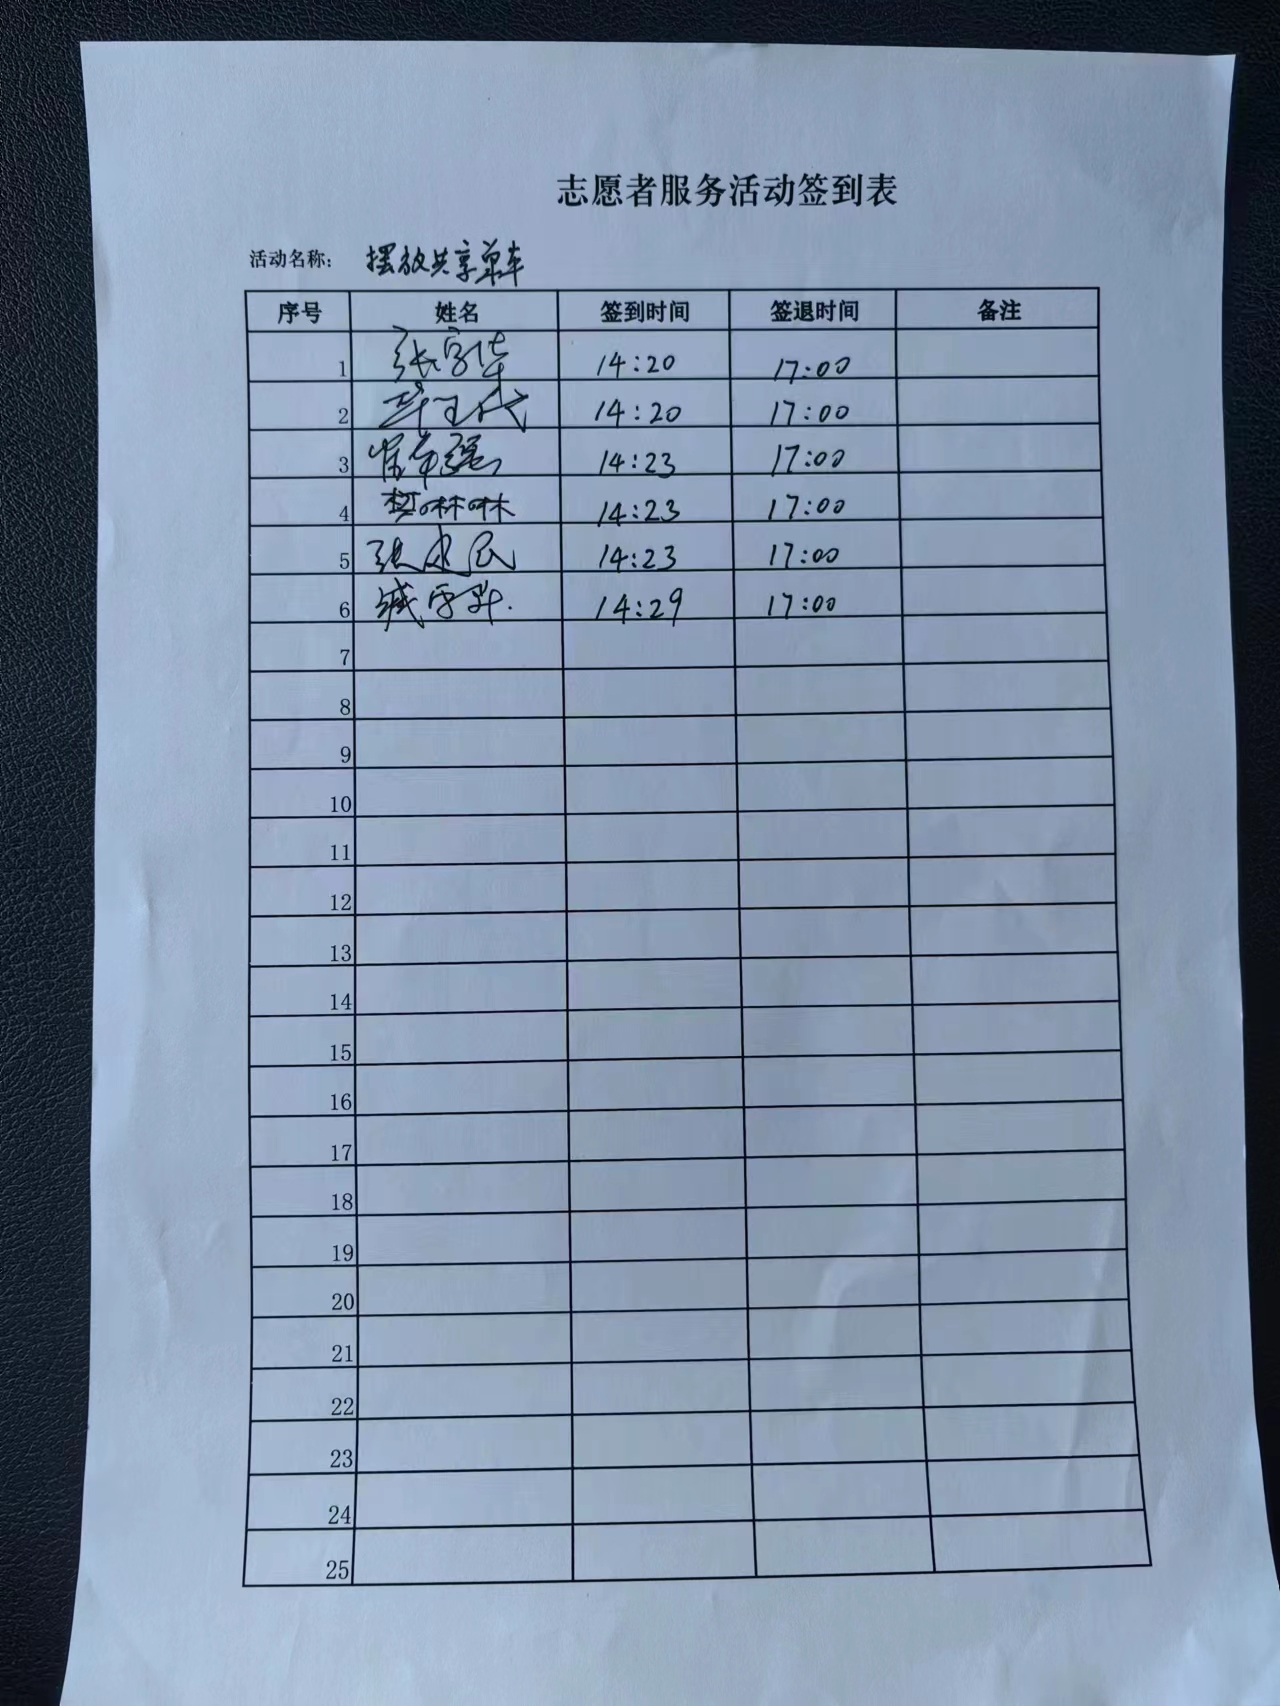 志愿者服务活动签到表
活动名称: 摆放共享单车
序号 姓名 签到时间 签退时间 备注
1 张宇华 14:20 17:00
2 14:20 17:00
3 14:23 17:00
4 14:23 17:00
5 张建民 14:23 17:00
6 14:29 17:00
7
8
9
10
11
12
13
14
15
16
17
18
19
20
21
22
23
24
25